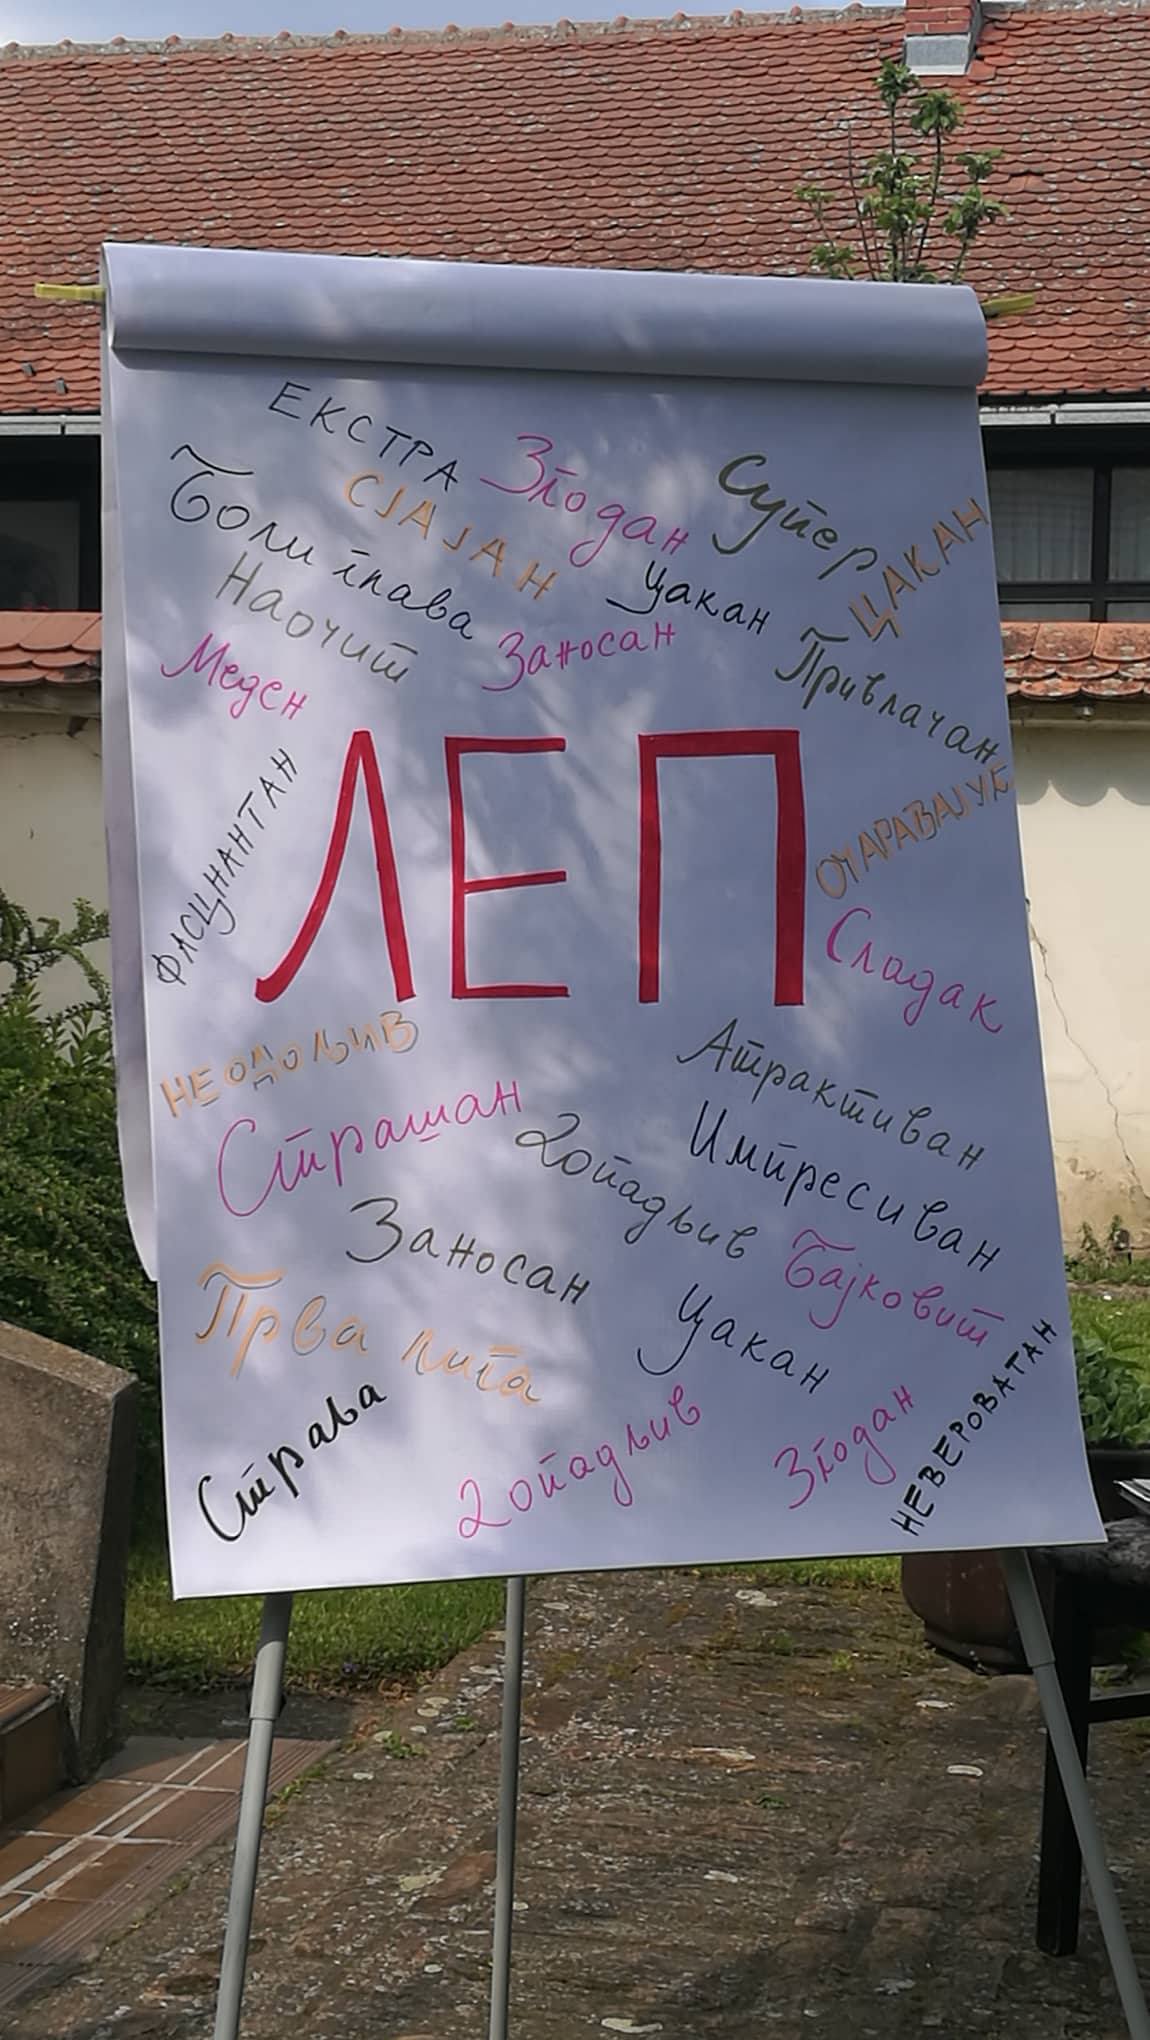 ЕКСТРА
Згодан
Супер
СЈАЈАН
Боли глава
ЦАКАН
Цакан
Наочит
Заносан
Привлачан
Меден
ЛЕП
ФАСЦНАНТАН
ОЧАРАВАЈУЋ
Сладак
НЕОДОЉИВ
Атрактиван
Страшан
Допадљив
Импресиван
Заносан
Бајковит
Прва лига
Цакан
Страва
Допадљив
Згодан
НЕВЕРОВАТАН